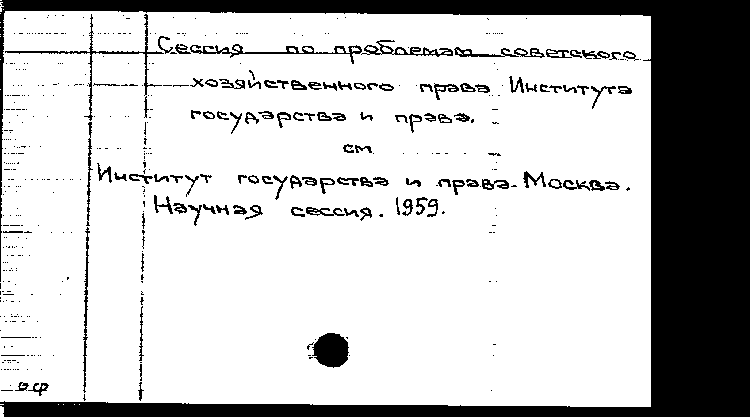 Сессия по проблемам советского
хозяйственного права Института
государства и права.
см
Институт государства и права. Москва.
Научная сессия. 1959.
оф